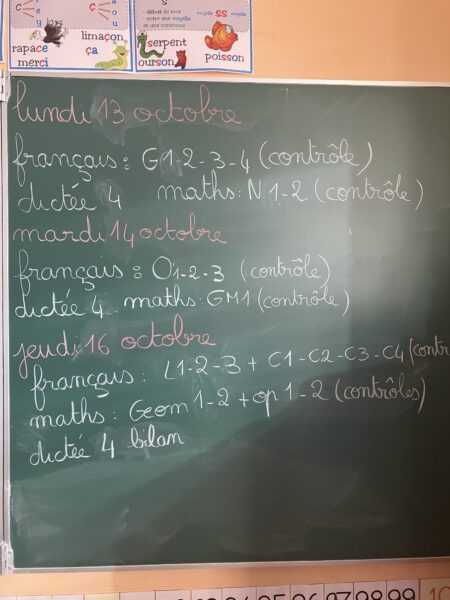 c
ç
o
u
limaçon
rapace
ça
merci
s
- début de mot
- entre une voyelle
et une consonne
voyelle ss voyelle
serpent
ourson
poisson
lundi 13 octobre
français : G1-2-3-4 (contrôle)
dictée 4 maths : N1-2 (contrôle)
mardi 14 octobre
français : O1-2-3 (contrôle)
dictée 4 maths : GM1 (contrôle)
jeudi 16 octobre
français : L1-2-3 + C1-C2-C3-C4 (contr
maths : Geom 1-2 + op 1-2 (contrôles)
dictée 4 bilan
97 98 99 10